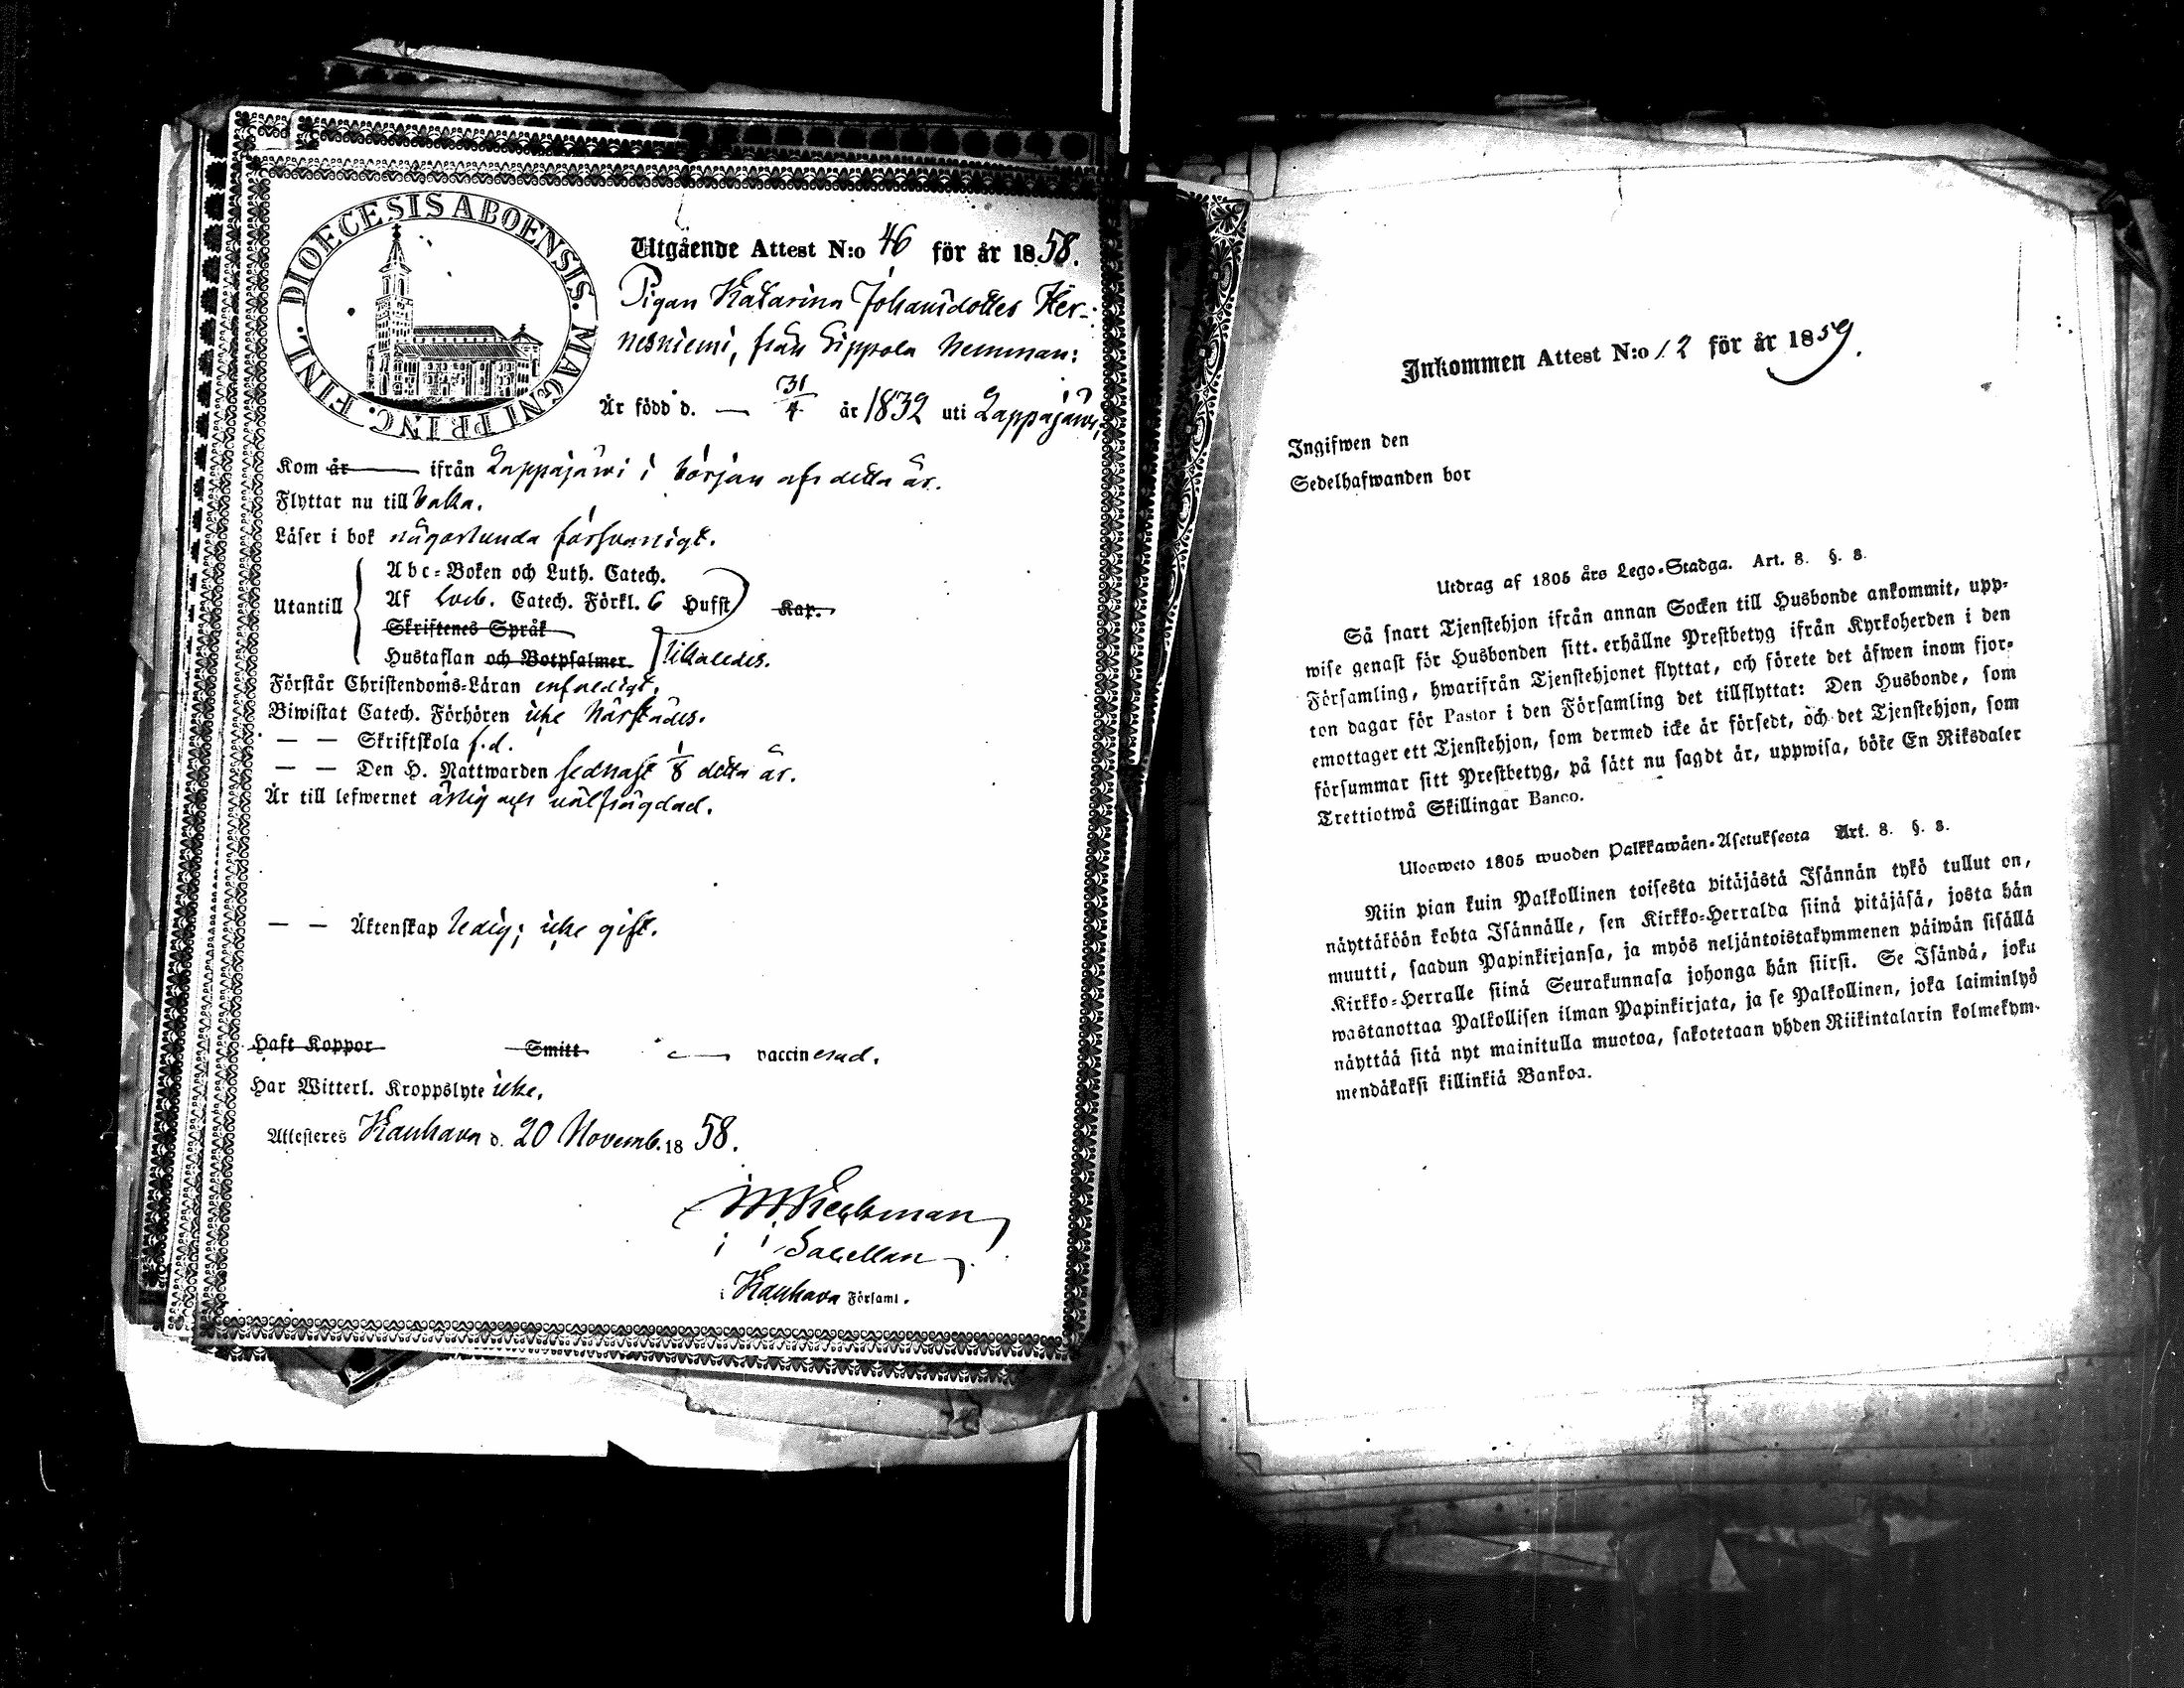 DIOECESIS ABOENSIS. MAGNI PRINC. FINL.
Utgående Attest N:o 46 för år 1858.
Pigan Katarina Johansdotter Her-
nesniemi, från Lippola hemman:
Är född d. — 31/4 år 1832 uti Lappajärvi,
Kom år ifrån Lappajärvi i början af detta år.
Flyttar nu till
Läser i bok någorlunda försvarligt.
Utantill
Abc-Boken och Luth. Catech.
Af Catech. Förkl. 6 Hufst Kap.
Skriftenes Språk
Hustaflan och Botpsalmer likaledes.
Förstår Christendoms-Läran enfaldigt.
Biwistat Catech. Förhören icke härstädes.
— — Skriftskola f.d.
— — Den H. Nattwarden sednast 1/8 detta år.
Är till lefwernet ärlig och välfrägdad.
— — Äktenskap ledig; icke gift.
Haft Koppor Smitt — vaccinerad.
Har Witterl. Kroppslyte icke.
Attesteres Kauhava d. 20 Novemb. 1858.
i Kauhava Församl.
Inkommen Attest N:o 12 för år 1859.
Ingifwen den
Sedelhafwanden bor
Utdrag af 1805 års Lego-Stadga. Art. 8. §. 8.
Så snart Tjenstehjon ifrån annan Socken till Husbonde ankommit, upp-
wise genast för Husbonden sitt erhållne Prestbetyg ifrån Kyrkoherden i den
Församling, hwarifrån Tjenstehjonet flyttat, och förete det äfwen inom fjor-
ton dagar för Pastor i den Församling det tillflyttat: Den Husbonde, som
emottager ett Tjenstehjon, som dermed icke är försedt, och det Tjenstehjon, som
försummar sitt Prestbetyg, på sätt nu sagdt är, uppwisa, böte En Riksdaler
Trettiotwå Skillingar Banco.
Ulosweto 1805 wuoden Palkkawäen-Asetuksesta Art. 8. §. 8.
Niin pian kuin Palkollinen toisesta pitäjästä Isännän tykö tullut on,
näyttäköön kohta Isännälle, sen Kirkko-Herralda siinä pitäjäsä, josta hän
muutti, saadun Papinkirjansa, ja myös neljäntoistakymmenen päiwän sisällä
Kirkko-Herralle siinä Seurakunnasa johonga hän siirsi. Se Isändä, joka
wastanottaa Palkollisen ilman Papinkirjata, ja se Palkollinen, joka laiminlyö
näyttää sitä nyt mainitulla muotoa, sakotetaan yhden Riikintalarin kolmekym-
mendäkaksi killinkiä Bankoa.